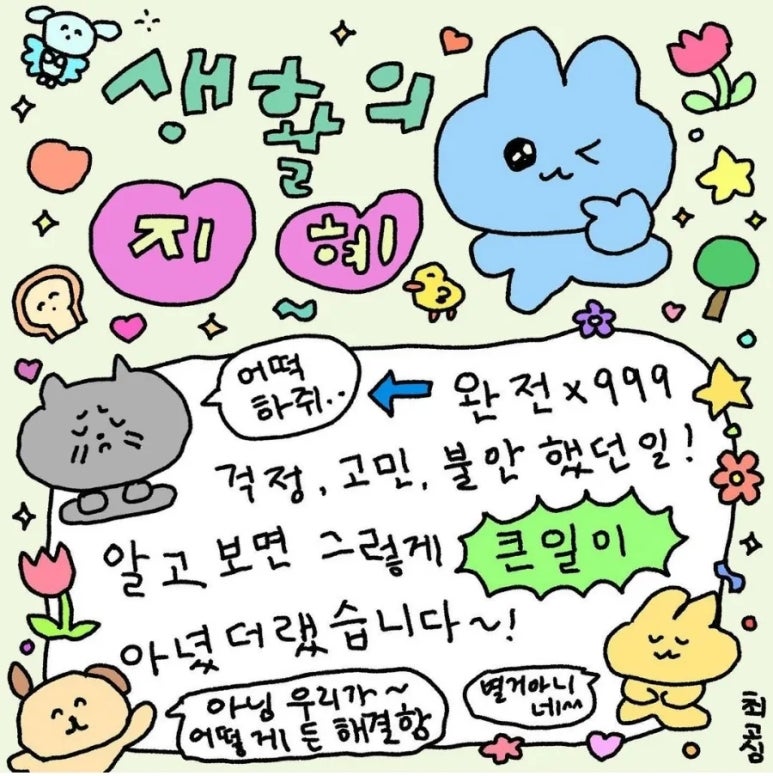 생활의
지혜
어떡
하쥐..
완전x999
걱정, 고민, 불안했던일!
알고보면 그렇게 큰일이
아녔더랬습니다~!
아닝 우리가~
어떻게든 해결항
별거아니
네^^
최고심